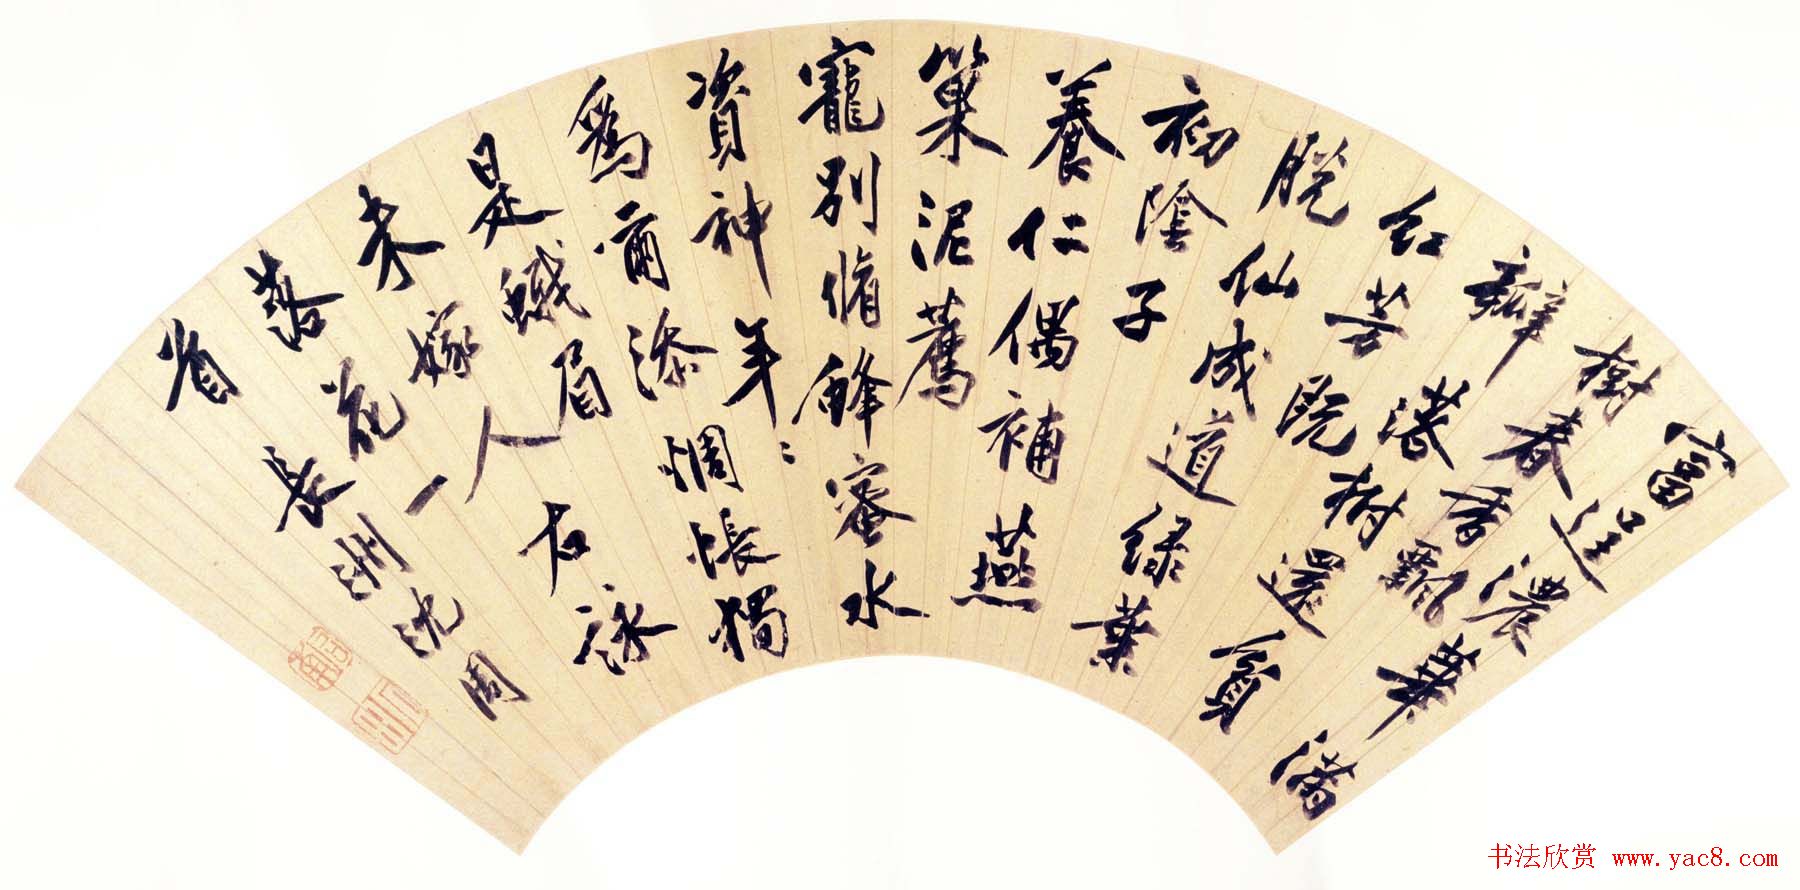 富逞濃華滿
樹春香飄
瓣落樹還貧
紅芳既
脫仙成道綠葉
初陰子
養仁偶補燕
巢泥薦
寵別脩蜂蜜水
資神年〻
為爾添惆悵獨
是蛾眉
未嫁人右詠
落花一
首長洲沈周
啟南
石田
书法欣赏 www.yac8.com